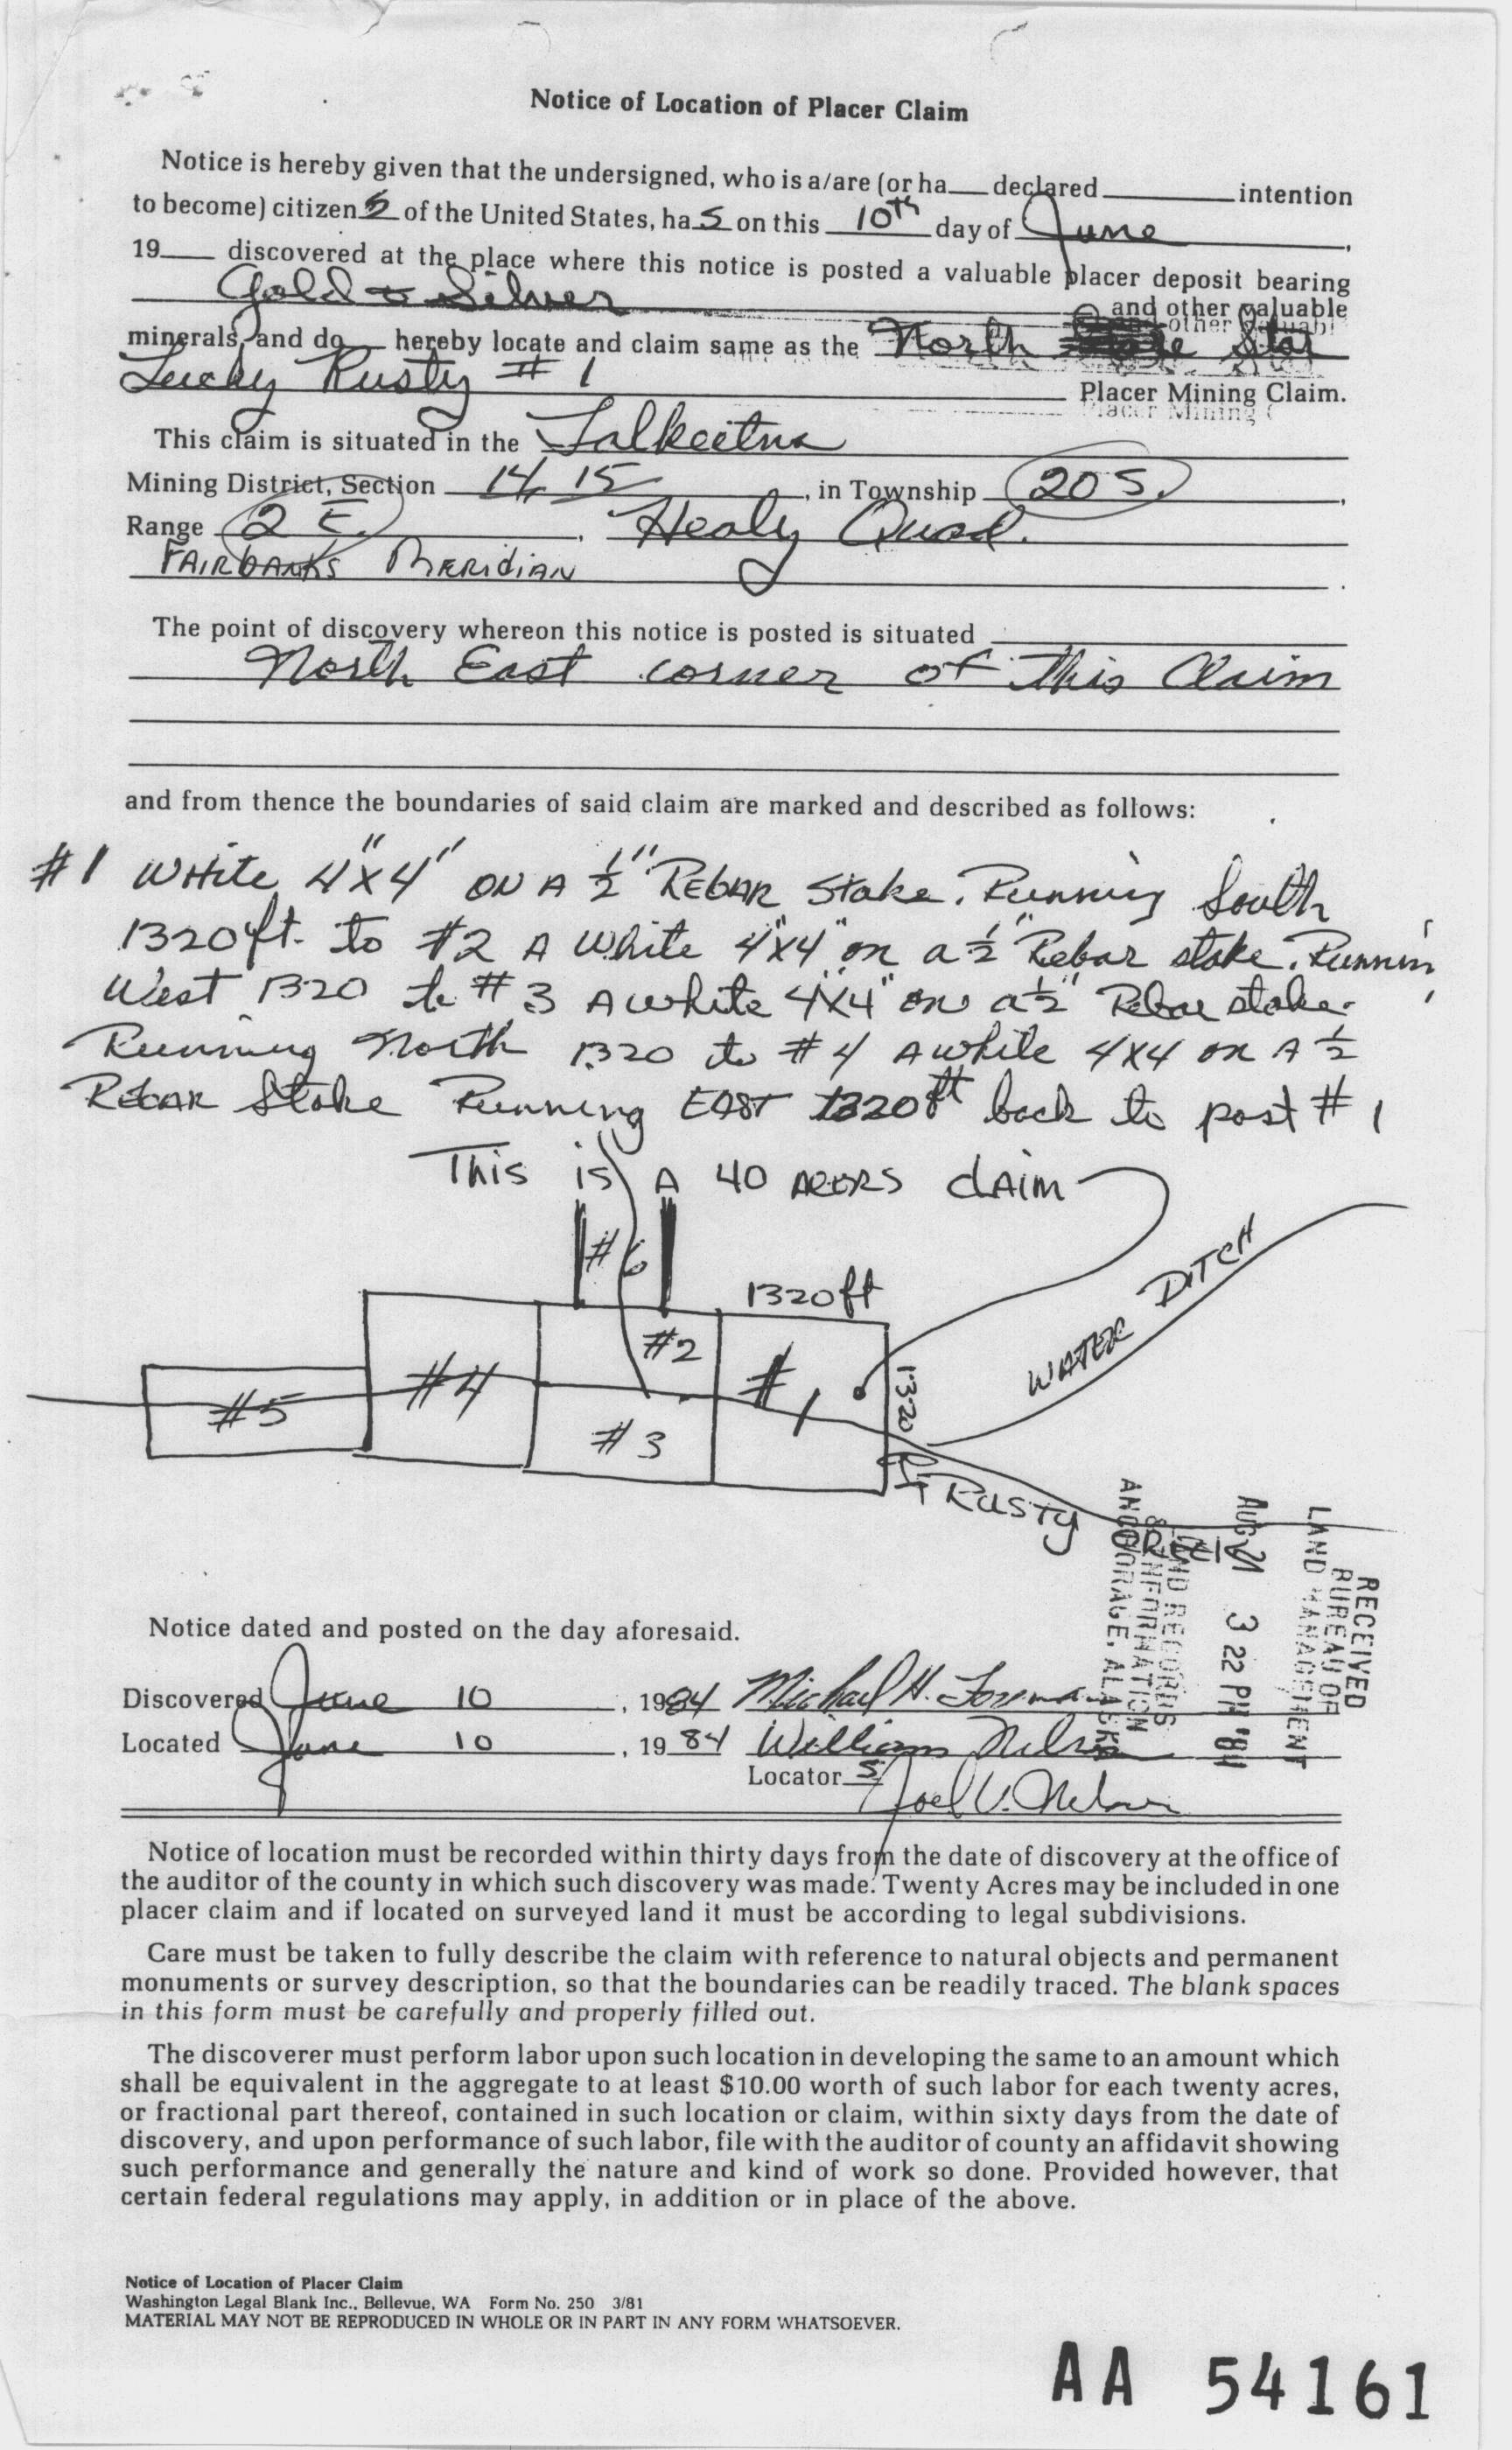 Notice of Location of Placer Claim
Notice is hereby given that the undersigned, who is a/are (or ha___ declared ______ intention
to become) citizen s of the United States, ha s on this 10th day of June,
19___ discovered at the place where this notice is posted a valuable placer deposit bearing
Gold + Silver and other valuable
minerals, and do ___ hereby locate and claim same as the North Star
Lucky Rusty # 1 Placer Mining Claim.
This claim is situated in the Talkeetna
Mining District, Section 14, 15, in Township 20 S.,
Range 2 E., Healy Quad.
FAIRBANKS MERIDIAN.
The point of discovery whereon this notice is posted is situated
North East corner of This Claim
and from thence the boundaries of said claim are marked and described as follows:
#1 White 4"x4" ON A 1/2" REBAR Stake. Running South
1320 ft. to #2 A White 4"x4" on a 1/2" Rebar stake. Runnin
West 1320 to #3 A white 4"x4" on a 1/2" Rebar stake.
Running North 1320 to #4 A white 4x4 on A 1/2
REBAR Stake Running EAST 1320 ft back to post # 1
This is A 40 ACERS CLAIM
#6
1320 ft
WATER DITCH
#2
#1
#4
#5
1320
#3
RUSTY CREEK
RECEIVED
BUREAU OF
LAND MANAGEMENT
AUG 21 3 22 PM '84
LAND RECORDS
& INFORMATION
ANCHORAGE, ALASKA
Notice dated and posted on the day aforesaid.
Discovered June 10, 1984 Michael H. Forman
Located June 10, 19 84 William Nelson
Locator s Joel V. Nelson
Notice of location must be recorded within thirty days from the date of discovery at the office of
the auditor of the county in which such discovery was made. Twenty Acres may be included in one
placer claim and if located on surveyed land it must be according to legal subdivisions.
Care must be taken to fully describe the claim with reference to natural objects and permanent
monuments or survey description, so that the boundaries can be readily traced. The blank spaces
in this form must be carefully and properly filled out.
The discoverer must perform labor upon such location in developing the same to an amount which
shall be equivalent in the aggregate to at least $10.00 worth of such labor for each twenty acres,
or fractional part thereof, contained in such location or claim, within sixty days from the date of
discovery, and upon performance of such labor, file with the auditor of county an affidavit showing
such performance and generally the nature and kind of work so done. Provided however, that
certain federal regulations may apply, in addition or in place of the above.
Notice of Location of Placer Claim
Washington Legal Blank Inc., Bellevue, WA Form No. 250 3/81
MATERIAL MAY NOT BE REPRODUCED IN WHOLE OR IN PART IN ANY FORM WHATSOEVER.
AA 54161